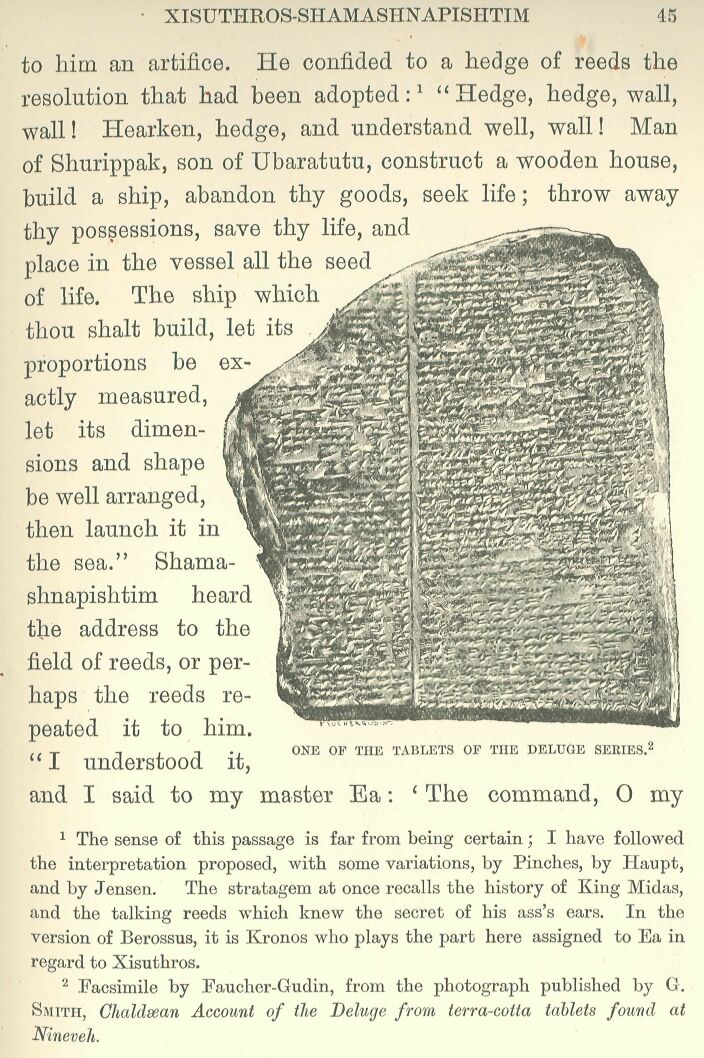 XISUTHROS-SHAMASHNAPISHTIM 45
to him an artifice. He confided to a hedge of reeds the
resolution that had been adopted:¹ “Hedge, hedge, wall,
wall! Hearken, hedge, and understand well, wall! Man
of Shurippak, son of Ubaratutu, construct a wooden house,
build a ship, abandon thy goods, seek life; throw away
thy possessions, save thy life, and
place in the vessel all the seed
of life. The ship which
thou shalt build, let its
proportions be ex-
actly measured,
let its dimen-
sions and shape
be well arranged,
then launch it in
the sea.” Shama-
shnapishtim heard
the address to the
field of reeds, or per-
haps the reeds re-
peated it to him.
“I understood it,
and I said to my master Ea: ‘The command, O my
FAUCHER-GUDIN
ONE OF THE TABLETS OF THE DELUGE SERIES.²
¹ The sense of this passage is far from being certain; I have followed
the interpretation proposed, with some variations, by Pinches, by Haupt,
and by Jensen. The stratagem at once recalls the history of King Midas,
and the talking reeds which knew the secret of his ass’s ears. In the
version of Berossus, it is Kronos who plays the part here assigned to Ea in
regard to Xisuthros.
² Facsimile by Faucher-Gudin, from the photograph published by G.
SMITH, Chaldæan Account of the Deluge from terra-cotta tablets found at
Nineveh.